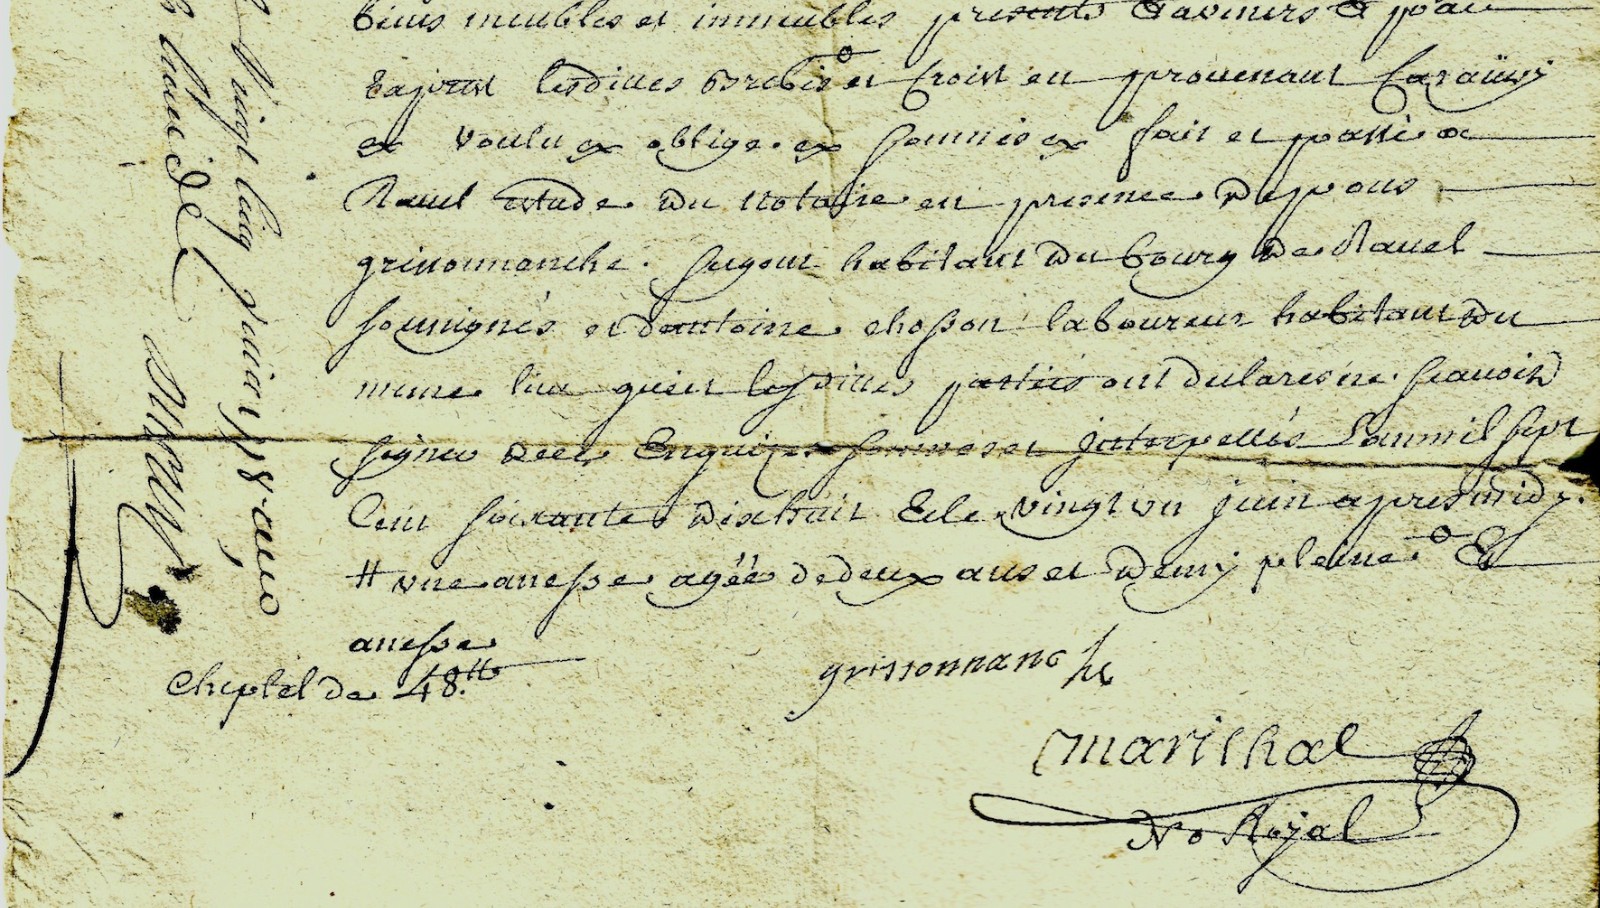 biens meubles et immeubles presents & avenirs & par
Exprest lesdittes brebis et croist en provenant Car ainsy
& voulu & oblige & soumis & fait et passé a
Ravel estude du notaire en presence de
grissonnanche habitant du bourg de Ravel
soussignés et d'antoine chosson laboureur habitant du
meme lieu qui et lesdittes parties ont declarés ne scavoir
signer de ce Enquis sommes et jnterpellés L'an mil sept
Cent soixante dixhuit & le vingt un juin apres midy.
# une anesse agéé de deux ans et demy pleine & 
anesse
Cheptel de 48 tt
grissonnanche
marithal
No Royal